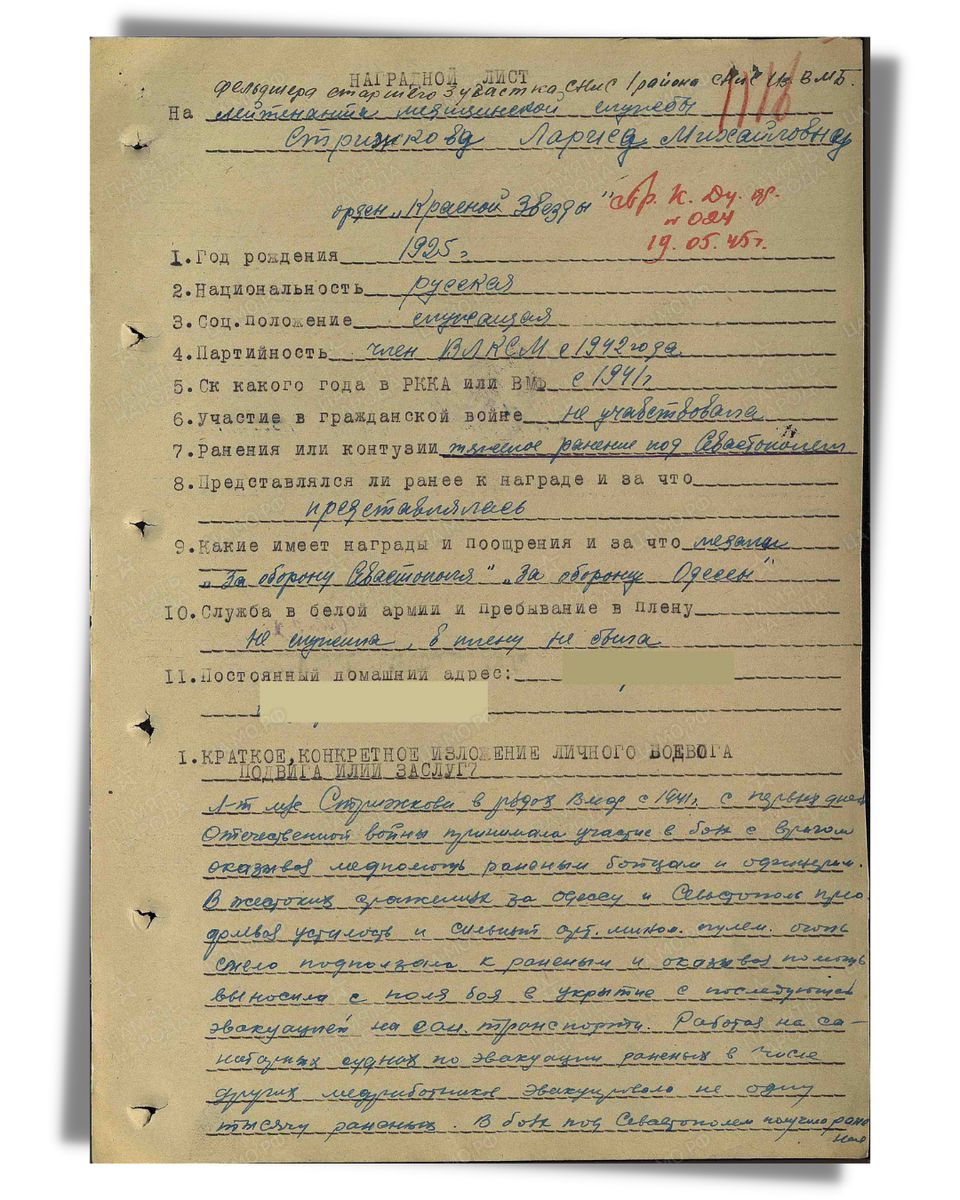 НАГРАДНОЙ ЛИСТ
фельдшера старшего 3 участка СНиС 1 района СНиС ВМБ.
На лейтенанта медицинской службы
Стрижкову Ларису Михайловну
орден „Красной Звезды"
Пр. К. Ду.
№ 024
19.05.45г.
1. Год рождения 1925г
2. Национальность русская
3. Соц. положение служащая
4. Партийность член ВЛКСМ с 1942 года
5. Ск какого года в РККА или ВМФ с 1941г
6. Участие в гражданской войне не участвовала
7. Ранения или контузии тяжелое ранение под Севастополем
8. Представлялся ли ранее к награде и за что
представлялась
9. Какие имеет награды и поощрения и за что медали
„За оборону Севастополя" „За оборону Одессы"
10. Служба в белой армии и пребывание в плену
не служила, в плену не была
11. Постоянный домашний адрес:
1. КРАТКОЕ, КОНКРЕТНОЕ ИЗЛОЖЕНИЕ ЛИЧНОГО БОЕВОГА
ПОДВИГА ИЛИИ ЗАСЛУГ?
Л-т м/с Стрижкова в рядах ВМФ с 1941г. с первых дней
Отечественной войны принимала участие в боях с врагом
оказывая медпомощь раненым бойцам и офицерам.
В жестоких сражениях за Одессу и Севастополь прео-
долевая усталость и сильный арт. мином. пулем. огонь
смело подползала к раненым и оказывая помощь
выносила с поля боя в укрытие с последующей
эвакуацией на сан. транспорты. Работая на са-
нитарных суднах по эвакуации раненых в числе
других медработников эвакуировала не одну
тысячу раненых. В боях под Севастополем получила ране-
ние